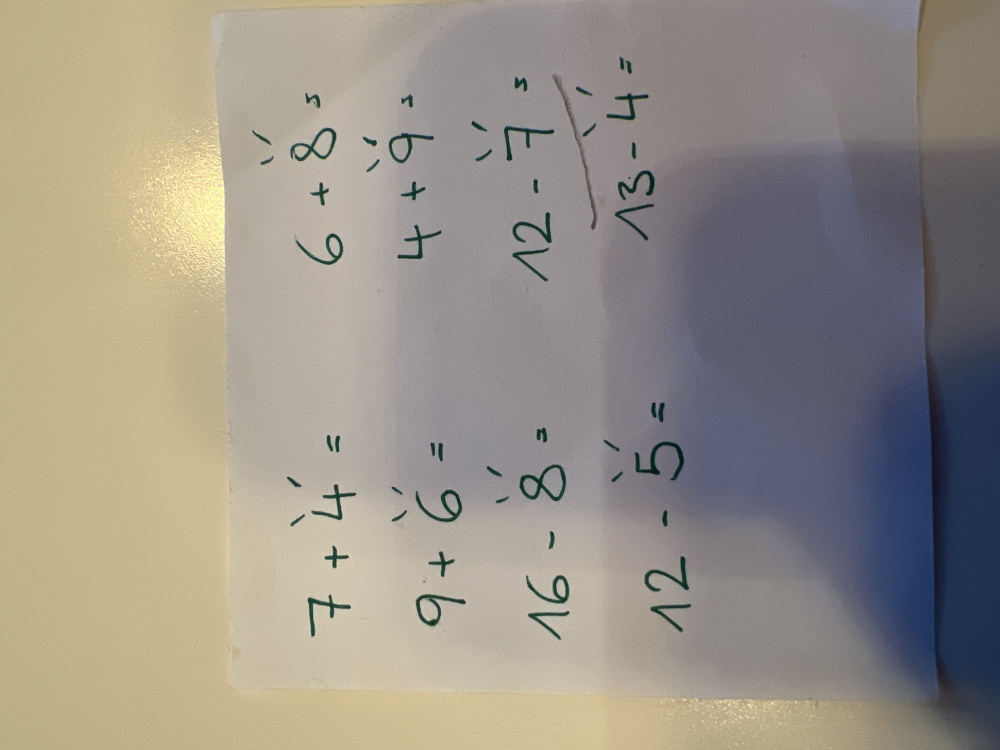 7 + 4 = 6 + 8 =
9 + 6 = 4 + 9 =
16 - 8 = 12 - 7 =
12 - 5 = 13 - 4 =